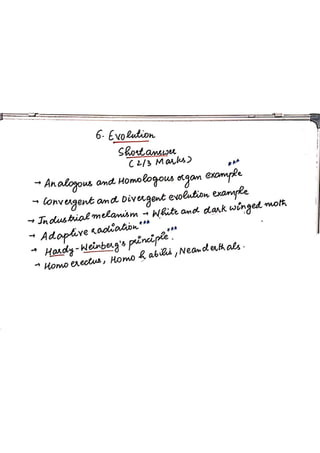 6. Evolution
Short answer
(2/3 Marks)
→ Analogous and Homologous organ example ***
→ Convergent and Divergent evolution example
→ Industrial melanism → White and dark winged moth
→ Adaptive radiation ***
→ Hardy-Weinberg's principle. ***
→ Homo erectus, Homo habilis, Neanderthals.